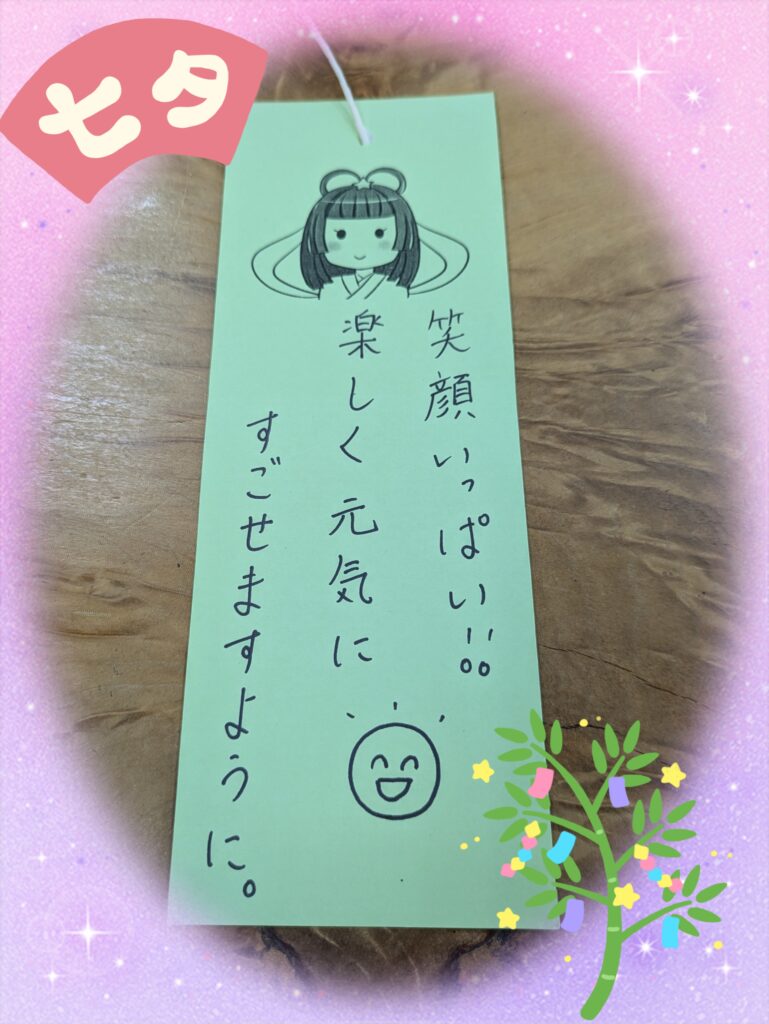 七夕
笑顔いっぱい!!
楽しく元気に
すごせますように。